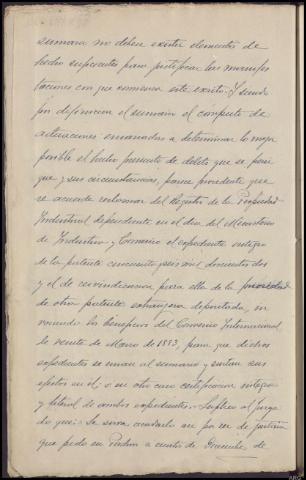 sumario no deben existir elementos de
hecho suficientes para justificar las manifes
taciones con que comienza este escrito. Y siendo
por definición el sumario el conjunto de
actuaciones encaminadas a determinar lo mejor
posible el hecho presunto de delito que se persi
gue y sus circunstancias, parece procedente que
se acuerde reclamar del Registro de la Propiedad
Industrial dependiente en el día del Ministerio
de Industria y Comercio el expediente íntegro
de la patente cincuenta y seis mil doscientos dos
y el de reivindicación para ella de la prioridad
de otra patente extranjera depositada, in
vocando los beneficios del Convenio Internacional
de veinte de Marzo de 1883, para que dichos
expedientes se unan al sumario y surtan sus
efectos en él, o en otro caso certificación íntegra
y literal de ambos expedientes.- Suplico al Juzga
do que: Se sirva acordarlo así por ser de justicia
que pido en Madrid a cuatro de Diciembre de